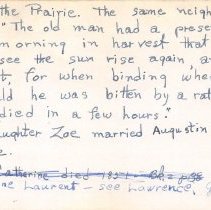 the Prairie. The same neigh
"The old man had a prese
morning in harvest that
see the sun rise again, a
t, for when binding whe
ld he was bitten by a rat
died in a few hours."
ughter Zoe married Augustin
e.
Catherine died 1851
ne Laurent - see Lawrence,